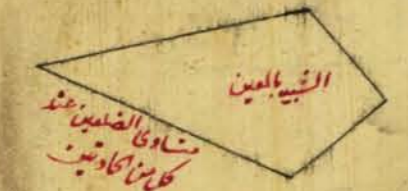 الشبيه بالمعين
متساوى الضلعين عند
كل من الحادتين